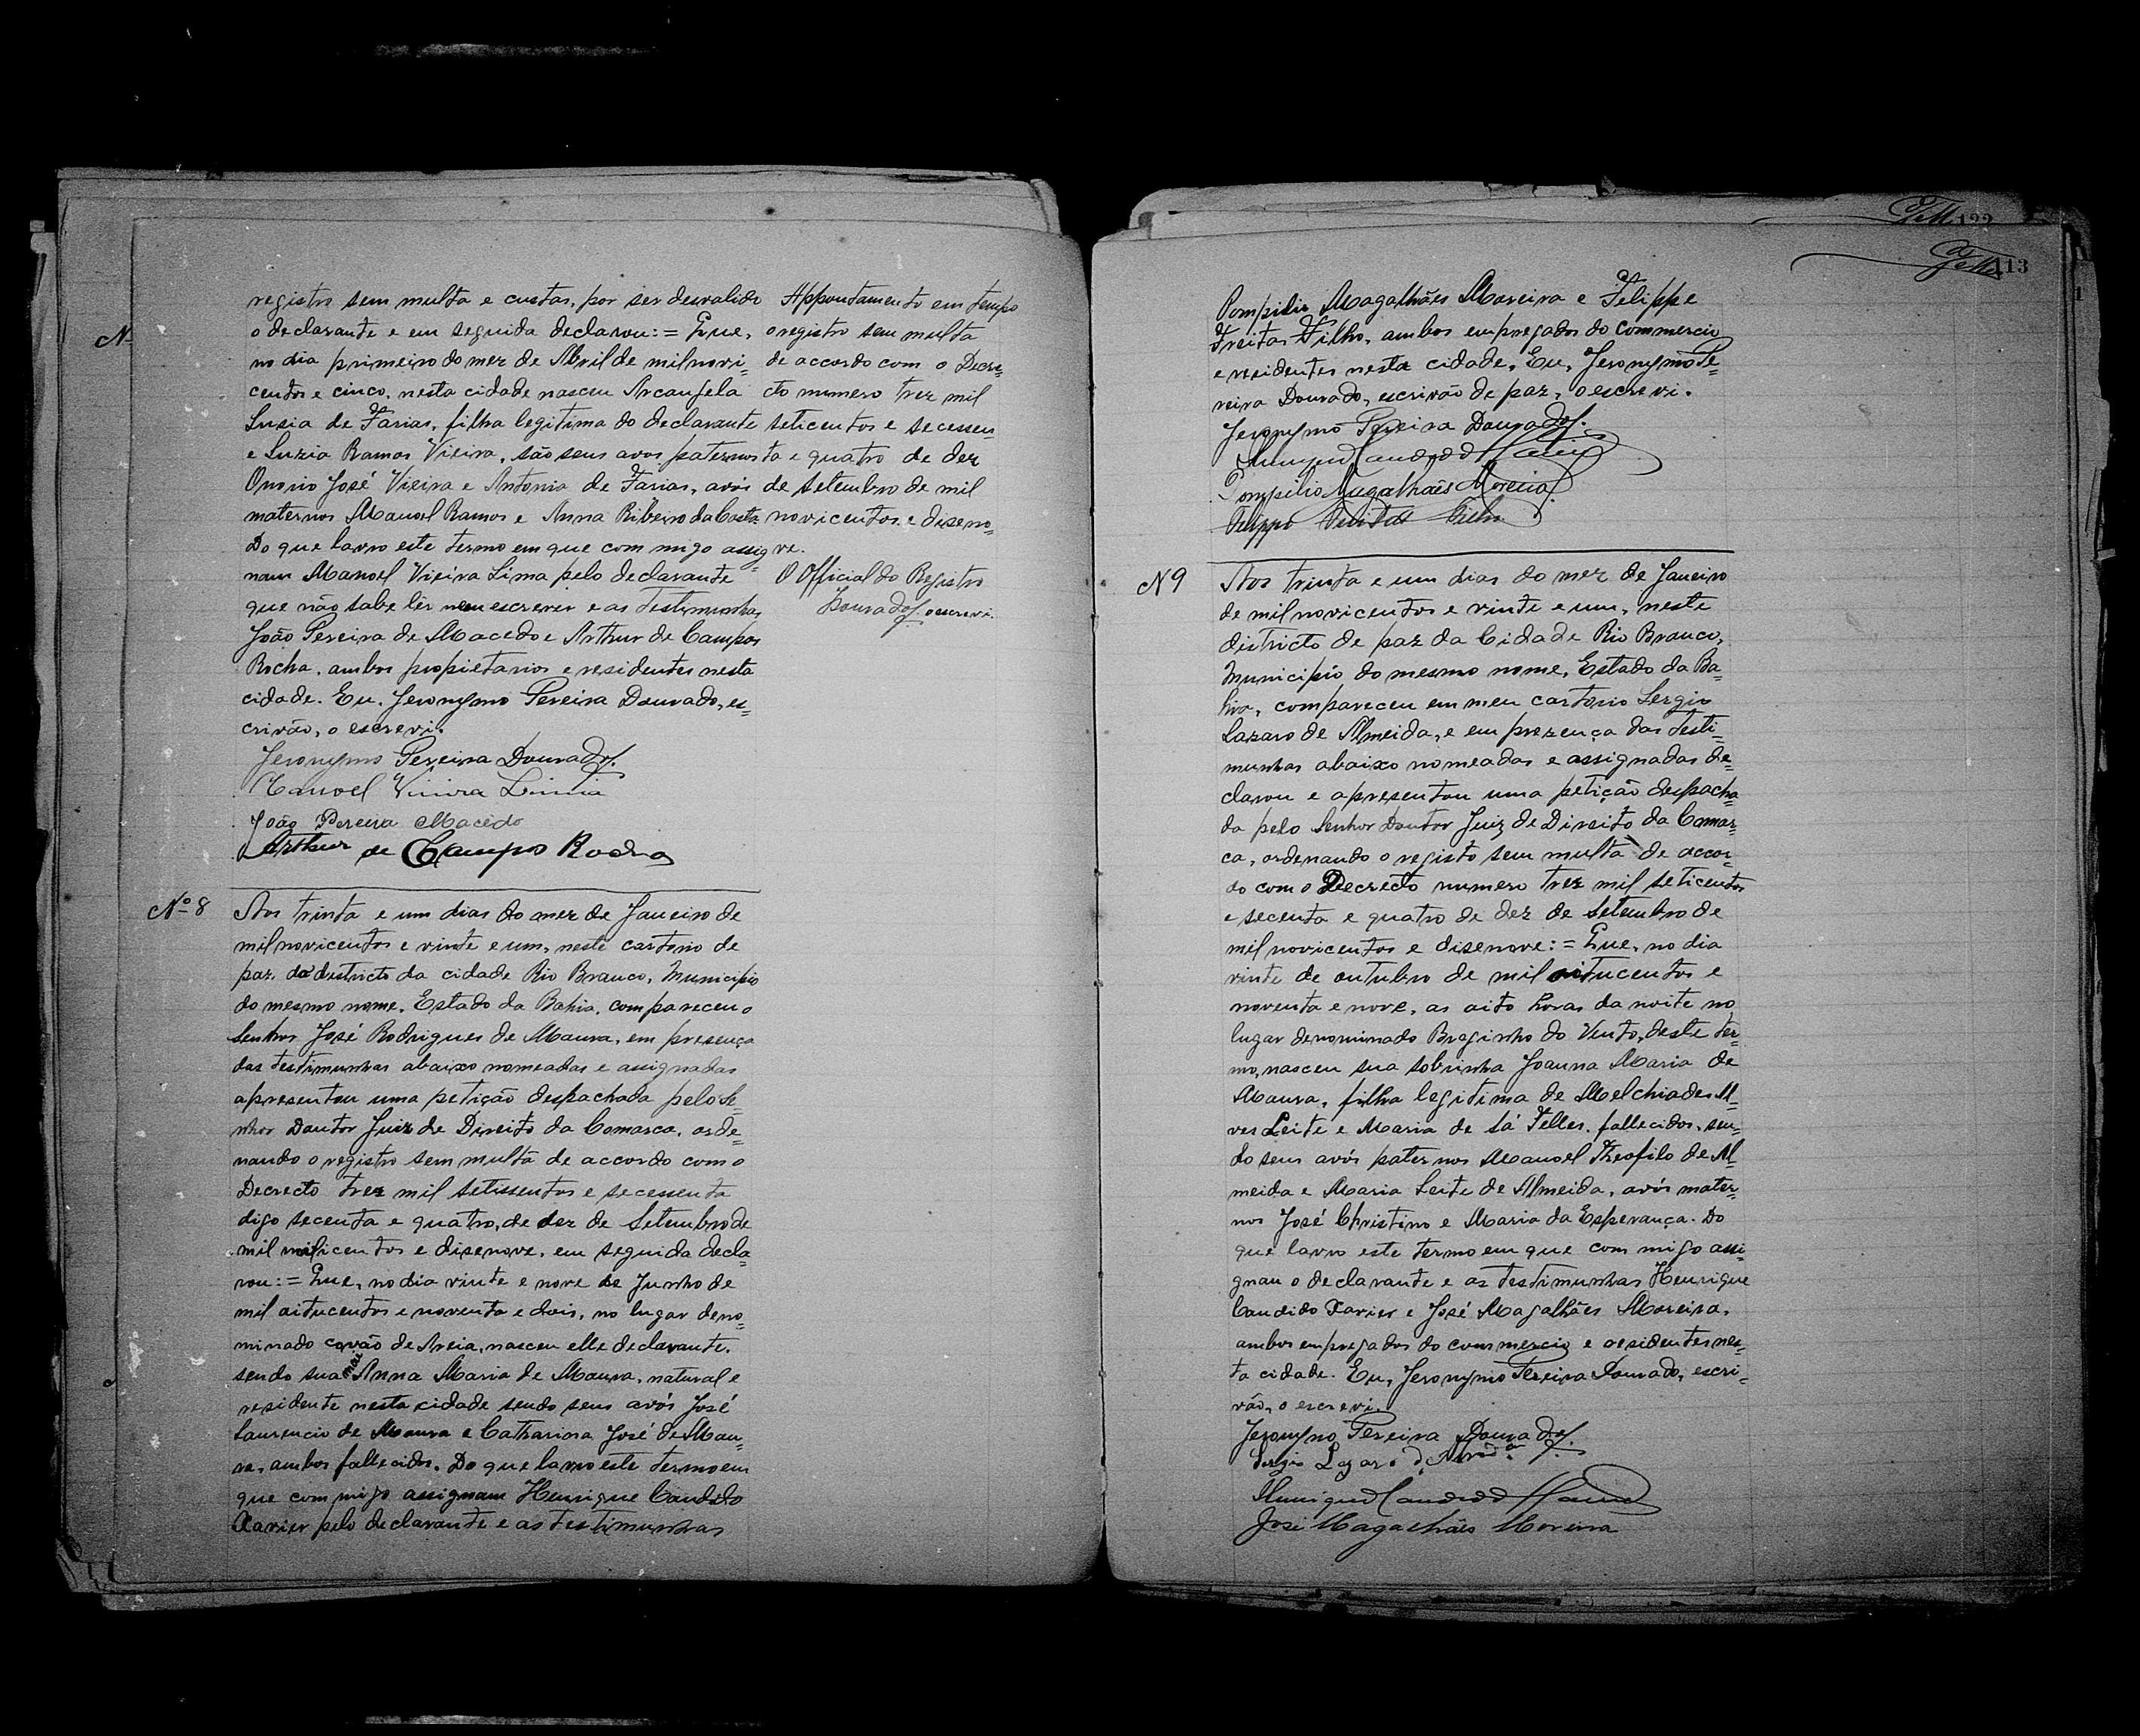 registro sem multa e custas, por ser desvalido
o declarante e em seguida declarou: = Que,
no dia primeiro do mez de Abril de mil novi=
centos e cinco, nesta cidade nasceu Arcanjela
Lusia de Farias, filha legitima do declarante
e Luzia Ramos Vieira, são seus avos paternos
Onorio José Vieira e Antonia de Farias, avós
maternos Manoel Ramos e Anna Ribeiro da Costa.
Do que lavro este termo em que com migo assig=
nam Manoel Vieira Lima pelo declarante
que não sabe lêr nem escrever e as testimunhas
João Pereira de Macedo e Arthur de Campos
Rocha, ambos propietarios e residentes nesta
cidade. Eu, Jeronymo Pereira Dourado, es=
crivão, o escrevi.
Jeronymo Pereira Dourado
Manoel Vieira Lima
João Pereira Macêdo
Arthur de Campos Rocha
Appontamento em tempo
o registro sem multa
de accordo com o Decre=
cto numero trez mil
seticentos e secessen
ta e quatro de dez
de setembro de mil
novicentos e diseno=
ve.
O Official do Registro
Dourado, o escrevi.
Nº 8
Aos trinta e um dias do mez de Janeiro de
mil novicentos e vinte e um, neste cartorio de
paz do districto da cidade Rio Branco, Municipio
do mesmo nome, Estado da Bahia, compareceu o
Senhor José Rodrigues de Maura, em presença
das testimunhas abaixo nomeadas e assignadas
apresentou uma petição despachada pelo Se=
nhor Doutor Juiz de Direito da Comarca, orde=
nando o registro sem multa de accordo com o
Decrecto trez mil setissentos e secessenta
digo secenta e quatro, de dez de Setembro de
mil novicentos e disenove, em seguida decla=
rou: = Que, no dia vinte e nove de Junho de
mil oitucentos e noventa e dois, no lugar deno=
minado covão de Areia, nasceu elle declarante,
sendo sua mãe Anna Maria de Maura, natural e
residente nesta cidade sendo seus avós José
Laurencio de Maura e Catharina José de Mau=
ra, ambos fallecidos. Do que lavro este termo em
que com migo assignam Henrique Candido
Xavier pelo declarante e as testimunhas
113
Pompilio Magalhães Moreira e Felippe
Freitas Filho, ambos empregados do commercio
e residentes nesta cidade. Eu, Jeronymo Pe=
reira Dourado, escrivão de paz, o escrevi.
Jeronymo Pereira Dourado
Henrique Candido Xavier
Pompilio Magalhães Moreira
Felippe Freitas Filho
N 9
Aos trinta e um dias do mez de Janeiro
de mil novicentos e vinte e um, neste
districto de paz da Cidade Rio Branco,
Municipio do mesmo nome, Estado da Ba=
hia, compareceu em meu cartorio Sergio
Lazaro de Almeida, e em prezença das testi=
munhas abaixo nomeadas e assignadas de=
clarou e apresentou uma petição despacha=
da pelo Senhor Doutor Juiz de Direito da Comar=
ca, ordenando o registo sem multa de accor=
do com o Decrecto numero trez mil seticentos
e secenta e quatro de dez de Setembro de
mil novicentos e disenove: = Que, no dia
vinte de outubro de mil oitucentos e
noventa e nove, as oito horas da noite no
lugar denominado Breginho do Vento, deste ter=
mo, nasceu sua sobrinha Joanna Maria de
Maura, filha legitima de Melchiades Al=
ves Leite e Maria de Sá Telles, fallecidos, sen=
do seus avós paternos Manoel Theofilo de Al=
meida e Maria Leite de Almeida, avós mater=
nos José Christino e Maria da Esperança. Do
que lavro este termo em que com migo assi=
gnam o declarante e as testimunhas Henrique
Candido Xavier e José Magalhães Moreira,
ambos empregados do commercio e residentes nes=
ta cidade. Eu, Jeronymo Pereira Dourado, escri=
vão, o escrevi.
Jeronymo Pereira Dourado
Sergio Lazaro
Henrique Candido Xavier
José Magalhães Moreira